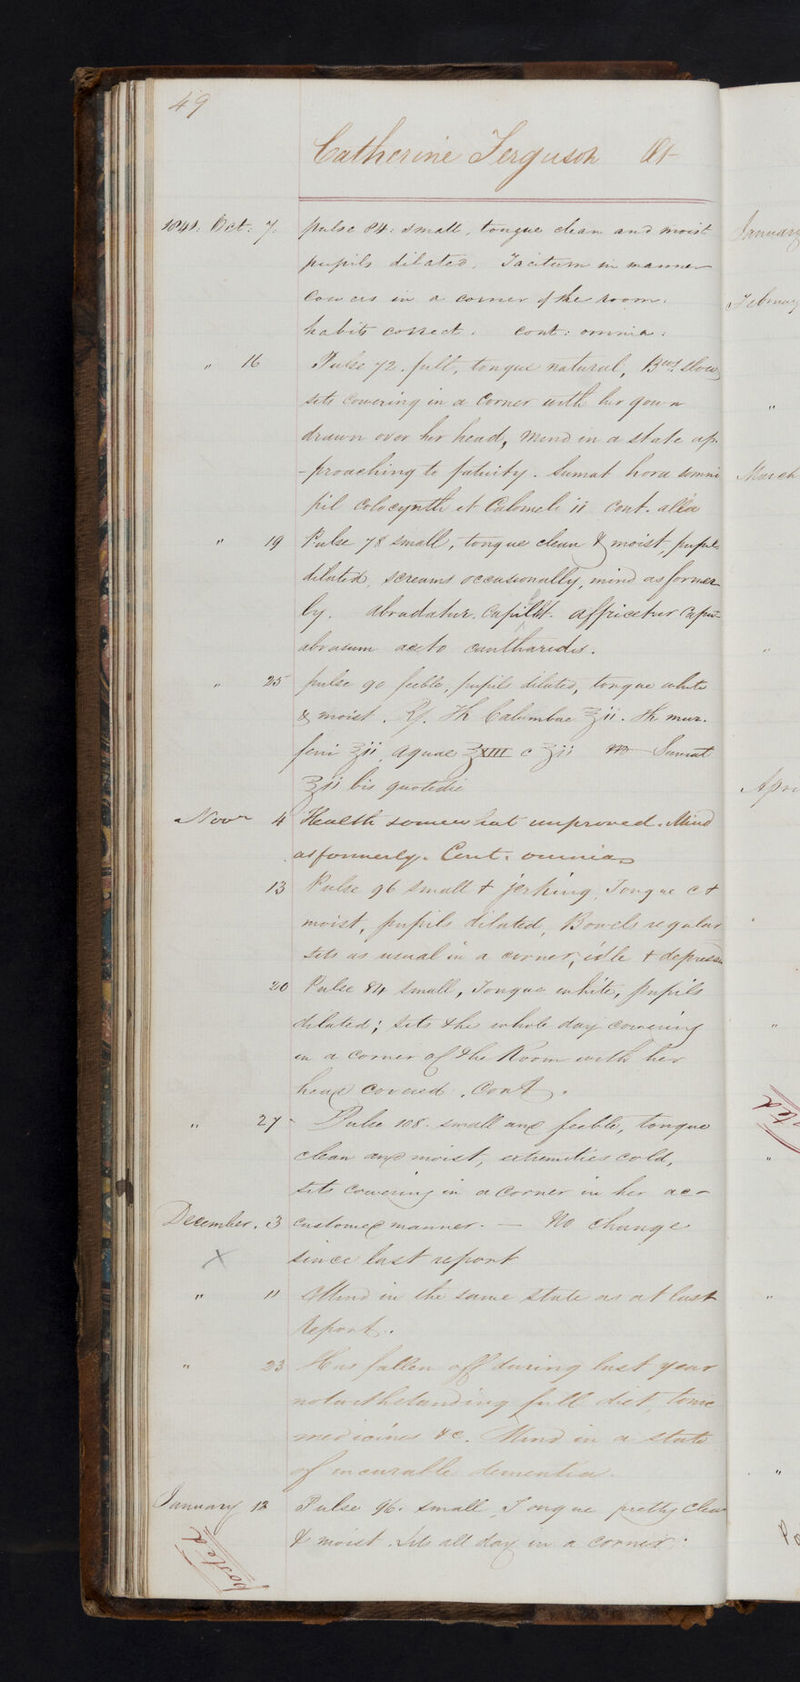 49
Catherine Ferguson
1841. Oct. 7. pulse 84. small, tongue clean and moist
pupils dilated. Taciturn in manner
Cowers in a corner of the room.
habits correct. cont: omnia.
" 16 Pulse 72. full, tongue natural, slow,
sits cowering in a Corner with her gown
drawn over her head, mind in a state ap-
-proaching to fatuity. Sumat hora somni
pil Colocynth et Calomel ii Cont. alia
" 19 Pulse 78 small, tongue clean & moist, pupils
dilated, screams occasionally, mind as former
ly. abradatur. Capill. affricetur Caput
abrasum aceto cantharidis.
" 25 pulse 90 feeble, pupils dilated, tongue white
& moist. Rx. Tr Calumbae ʒii. Tr mur.
ferri ʒii, Aquae ℥XIII c ʒii Sumat
bis quotidie
Novr 4 Health somewhat improved. Mind
as formerly. Cont. omnia
13 Pulse 96 small & jerking, Tongue c &
moist, pupils dilated, Bowels regular
sits as usual in a corner, idle & depressed
20 Pulse 84 small, Tongue white, pupils
dilated; sits the whole day cowering
in a corner of the Room with her
head covered. Cont.
" 27 Pulse 108. small and feeble, tongue
clean and moist, extremities cold,
sits cowering in a corner in her ac-
December. 3 customed manner. — No change
X since last report
" 11 Mind in the same state as at last
Report.
" 23 Has fallen off during last year
notwithstanding full diet, tonic
medicines &c. Mind in a state
of incurable dementia.
January 12 Pulse 96. small, Tongue pretty clean
& moist. Sits all day in a corner.
posted
January
February
"
March
"
"
"
"
"